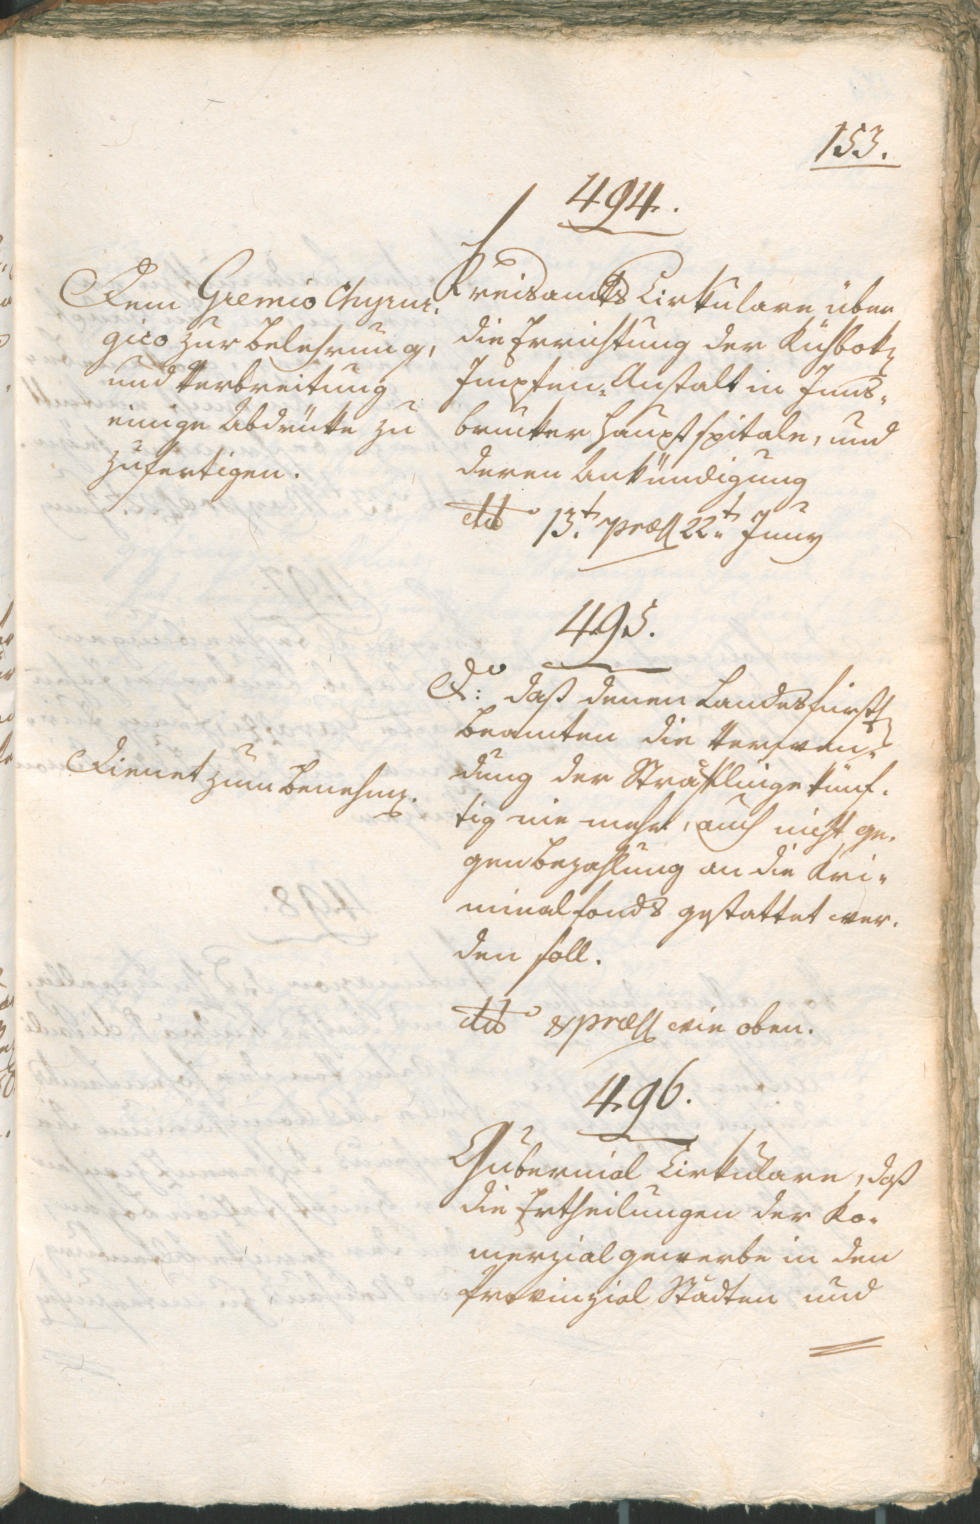 153.
494.
Dem Gremio Chyrur-
gico zur Belehrung,
und Verbreitung
einige Abdrüke zu
zufertigen.
Kreisamts Cirkulare über
die Errichtung der Kühbok
Impfen-Anstalt in Inns-
brucker Hauptspitale, und
deren Ankündigung
ddo 13t. præs 22t. Juny
495.
Do: daß denen Landesfürstl
Beamten die Verwen-
dung der Sträflinge künf-
tig nie mehr, auch nicht ge-
gen Bezahlung an die Kri-
minalfonds gestattet wer-
den soll.
Dienet zum Benehmen.
ddo & præs wie oben.
496.
Gubernial Cirkulare, daß
die Ertheilungen der Ko-
merzialgewerbe in den
Provinzial Städten und